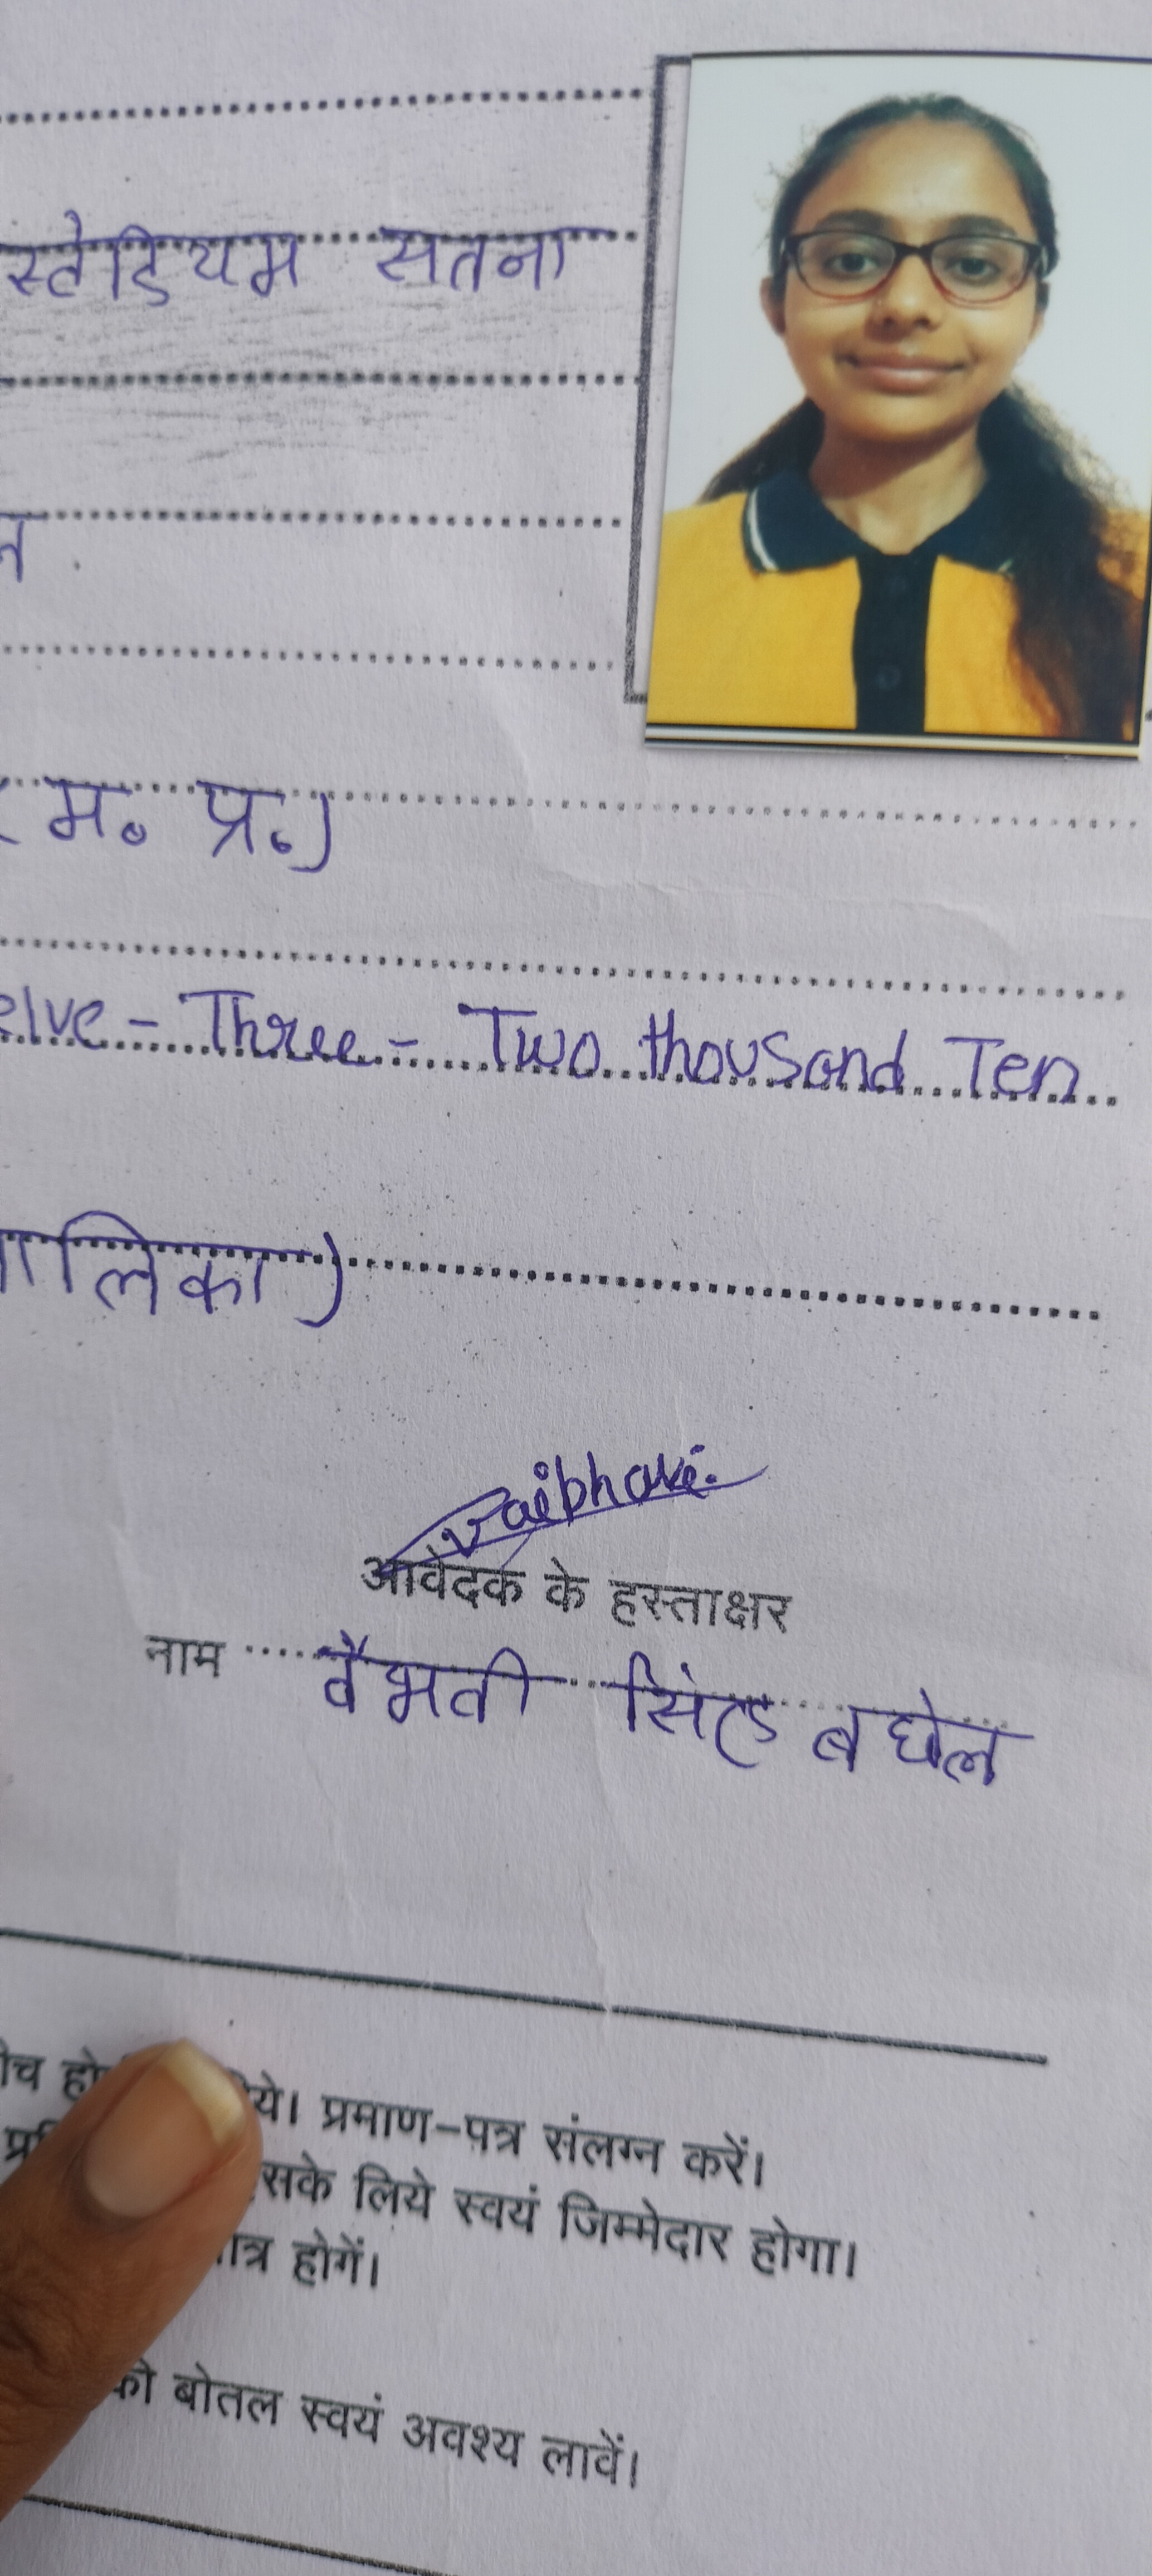 स्टेडियम सतना
म. प्र.)
elve - Three - Two thousand Ten
लिका)
Vaibhavi
आवेदक के हस्ताक्षर
नाम वैभवी सिंह बघेल
प्रमाण-पत्र संलग्न करें।
सके लिये स्वयं जिम्मेदार होगा।
होगें।
की बोतल स्वयं अवश्य लावें।